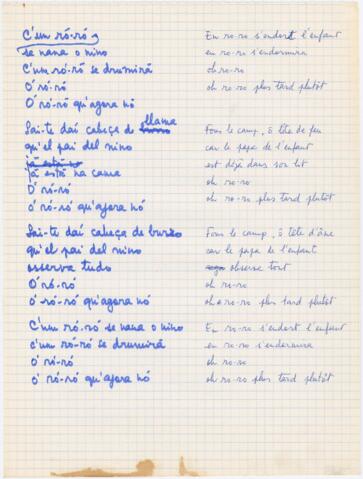 C'um ró-ró
se nana o nino
C'um ró-ró se drumirá
O' ró-ró
O' ró-ró qu'agora nó
Sai-te daí cabeça de burro llama
qu'el pai del nino
já está no
já está na cama
O' ró-ró
o' ró-ró qu'agora nó
Sai-te daí cabeça de burro
qu'el pai del nino
osserva tudo
O' ró-ró
o' ró-ró qu'agora nó
C'um ró-ró se nana o nino
c'um ró-ró se drumirá
o' ró-ró
o' ró-ró qu'agora nó
En ro-ro s'endort l'enfant
en ro-ro s'endormira
oh ro-ro
oh ro-ro plus tard plutôt
Fous le camp, ô tête de feu
car le papa de l'enfant
est déjà dans son lit
oh ro-ro
oh ro-ro plus tard plutôt
Fous le camp, ô tête d'âne
car le papa de l'enfant
observe tout
oh ro-ro
oh ro-ro plus tard plutôt
En ro-ro s'endort l'enfant
en ro-ro s'endormira
oh ro-ro
oh ro-ro plus tard plutôt